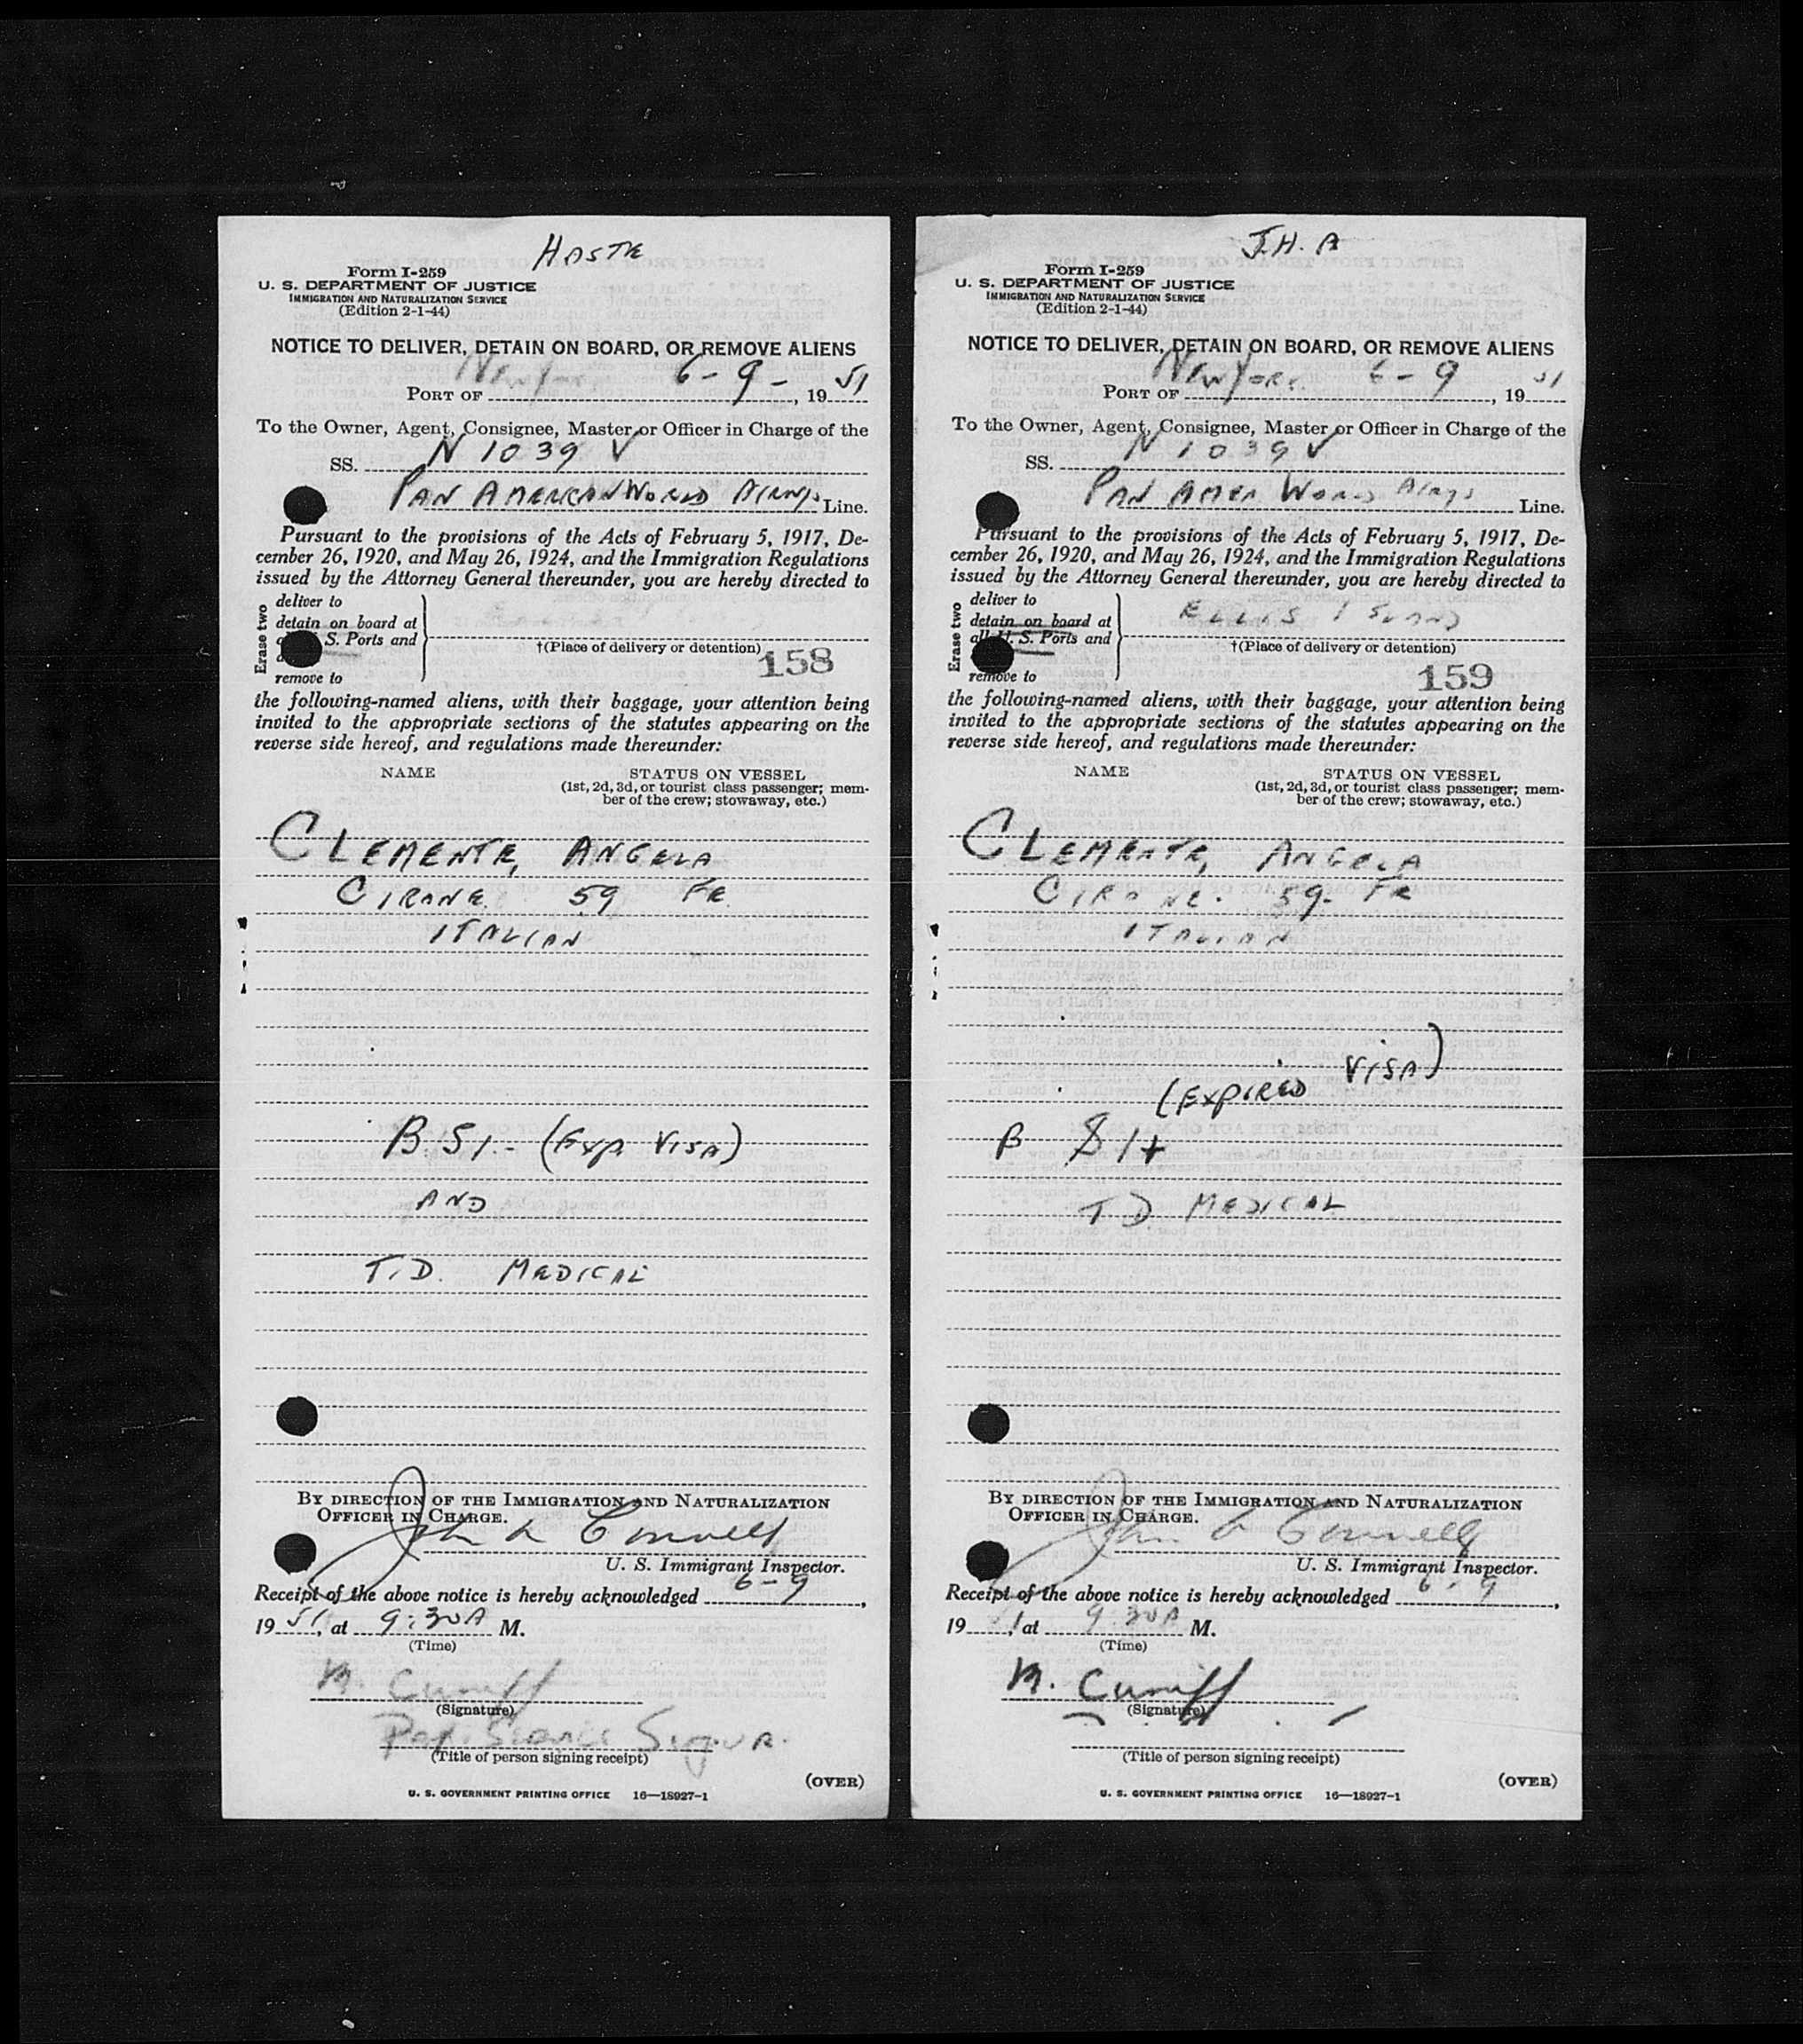 HASTE
Form I-259
U. S. DEPARTMENT OF JUSTICE
IMMIGRATION AND NATURALIZATION SERVICE
(Edition 2-1-44)
NOTICE TO DELIVER, DETAIN ON BOARD, OR REMOVE ALIENS
PORT OF New York 6-9-, 19 51
To the Owner, Agent, Consignee, Master or Officer in Charge of the
SS. N 1039 V
PAN AMERICAN WORLD Airways Line.
Pursuant to the provisions of the Acts of February 5, 1917, De-
cember 26, 1920, and May 26, 1924, and the Immigration Regulations
issued by the Attorney General thereunder, you are hereby directed to
Erase two
deliver to
detain on board at
S. Ports and
†(Place of delivery or detention)
158
remove to
the following-named aliens, with their baggage, your attention being
invited to the appropriate sections of the statutes appearing on the
reverse side hereof, and regulations made thereunder:
NAME STATUS ON VESSEL
(1st, 2d, 3d, or tourist class passenger; mem-
ber of the crew; stowaway, etc.)
CLEMENTE, ANGELA
CIRONE 59 FE
ITALIAN
B.S.I. - (Exp. VISA)
AND
T.D. MEDICAL
BY DIRECTION OF THE IMMIGRATION AND NATURALIZATION
OFFICER IN CHARGE.
U. S. Immigrant Inspector.
Receipt of the above notice is hereby acknowledged 6-9,
19 51, at 9:30 A M.
(Time)
M. Cuniff
(Signature)
(Title of person signing receipt)
(OVER)
U. S. GOVERNMENT PRINTING OFFICE 16—18927-1
J.H. A
Form I-259
U. S. DEPARTMENT OF JUSTICE
IMMIGRATION AND NATURALIZATION SERVICE
(Edition 2-1-44)
NOTICE TO DELIVER, DETAIN ON BOARD, OR REMOVE ALIENS
PORT OF New York 6-9, 19 51
To the Owner, Agent, Consignee, Master or Officer in Charge of the
SS. N 1039 V
PAN AMER WORLD Airways Line.
Pursuant to the provisions of the Acts of February 5, 1917, De-
cember 26, 1920, and May 26, 1924, and the Immigration Regulations
issued by the Attorney General thereunder, you are hereby directed to
Erase two
deliver to
detain on board at ELLIS ISLAND
all U. S. Ports and
†(Place of delivery or detention)
159
remove to
the following-named aliens, with their baggage, your attention being
invited to the appropriate sections of the statutes appearing on the
reverse side hereof, and regulations made thereunder:
NAME STATUS ON VESSEL
(1st, 2d, 3d, or tourist class passenger; mem-
ber of the crew; stowaway, etc.)
CLEMENTE, ANGELA
CIRONE. 59- FE
ITALIAN
(EXPIRED VISA)
B S I +
T D MEDICAL
BY DIRECTION OF THE IMMIGRATION AND NATURALIZATION
OFFICER IN CHARGE.
U. S. Immigrant Inspector.
Receipt of the above notice is hereby acknowledged 6-9,
19 51, at 9:30 A M.
(Time)
M. Cuniff
(Signature)
(Title of person signing receipt)
(OVER)
U. S. GOVERNMENT PRINTING OFFICE 16—18927-1